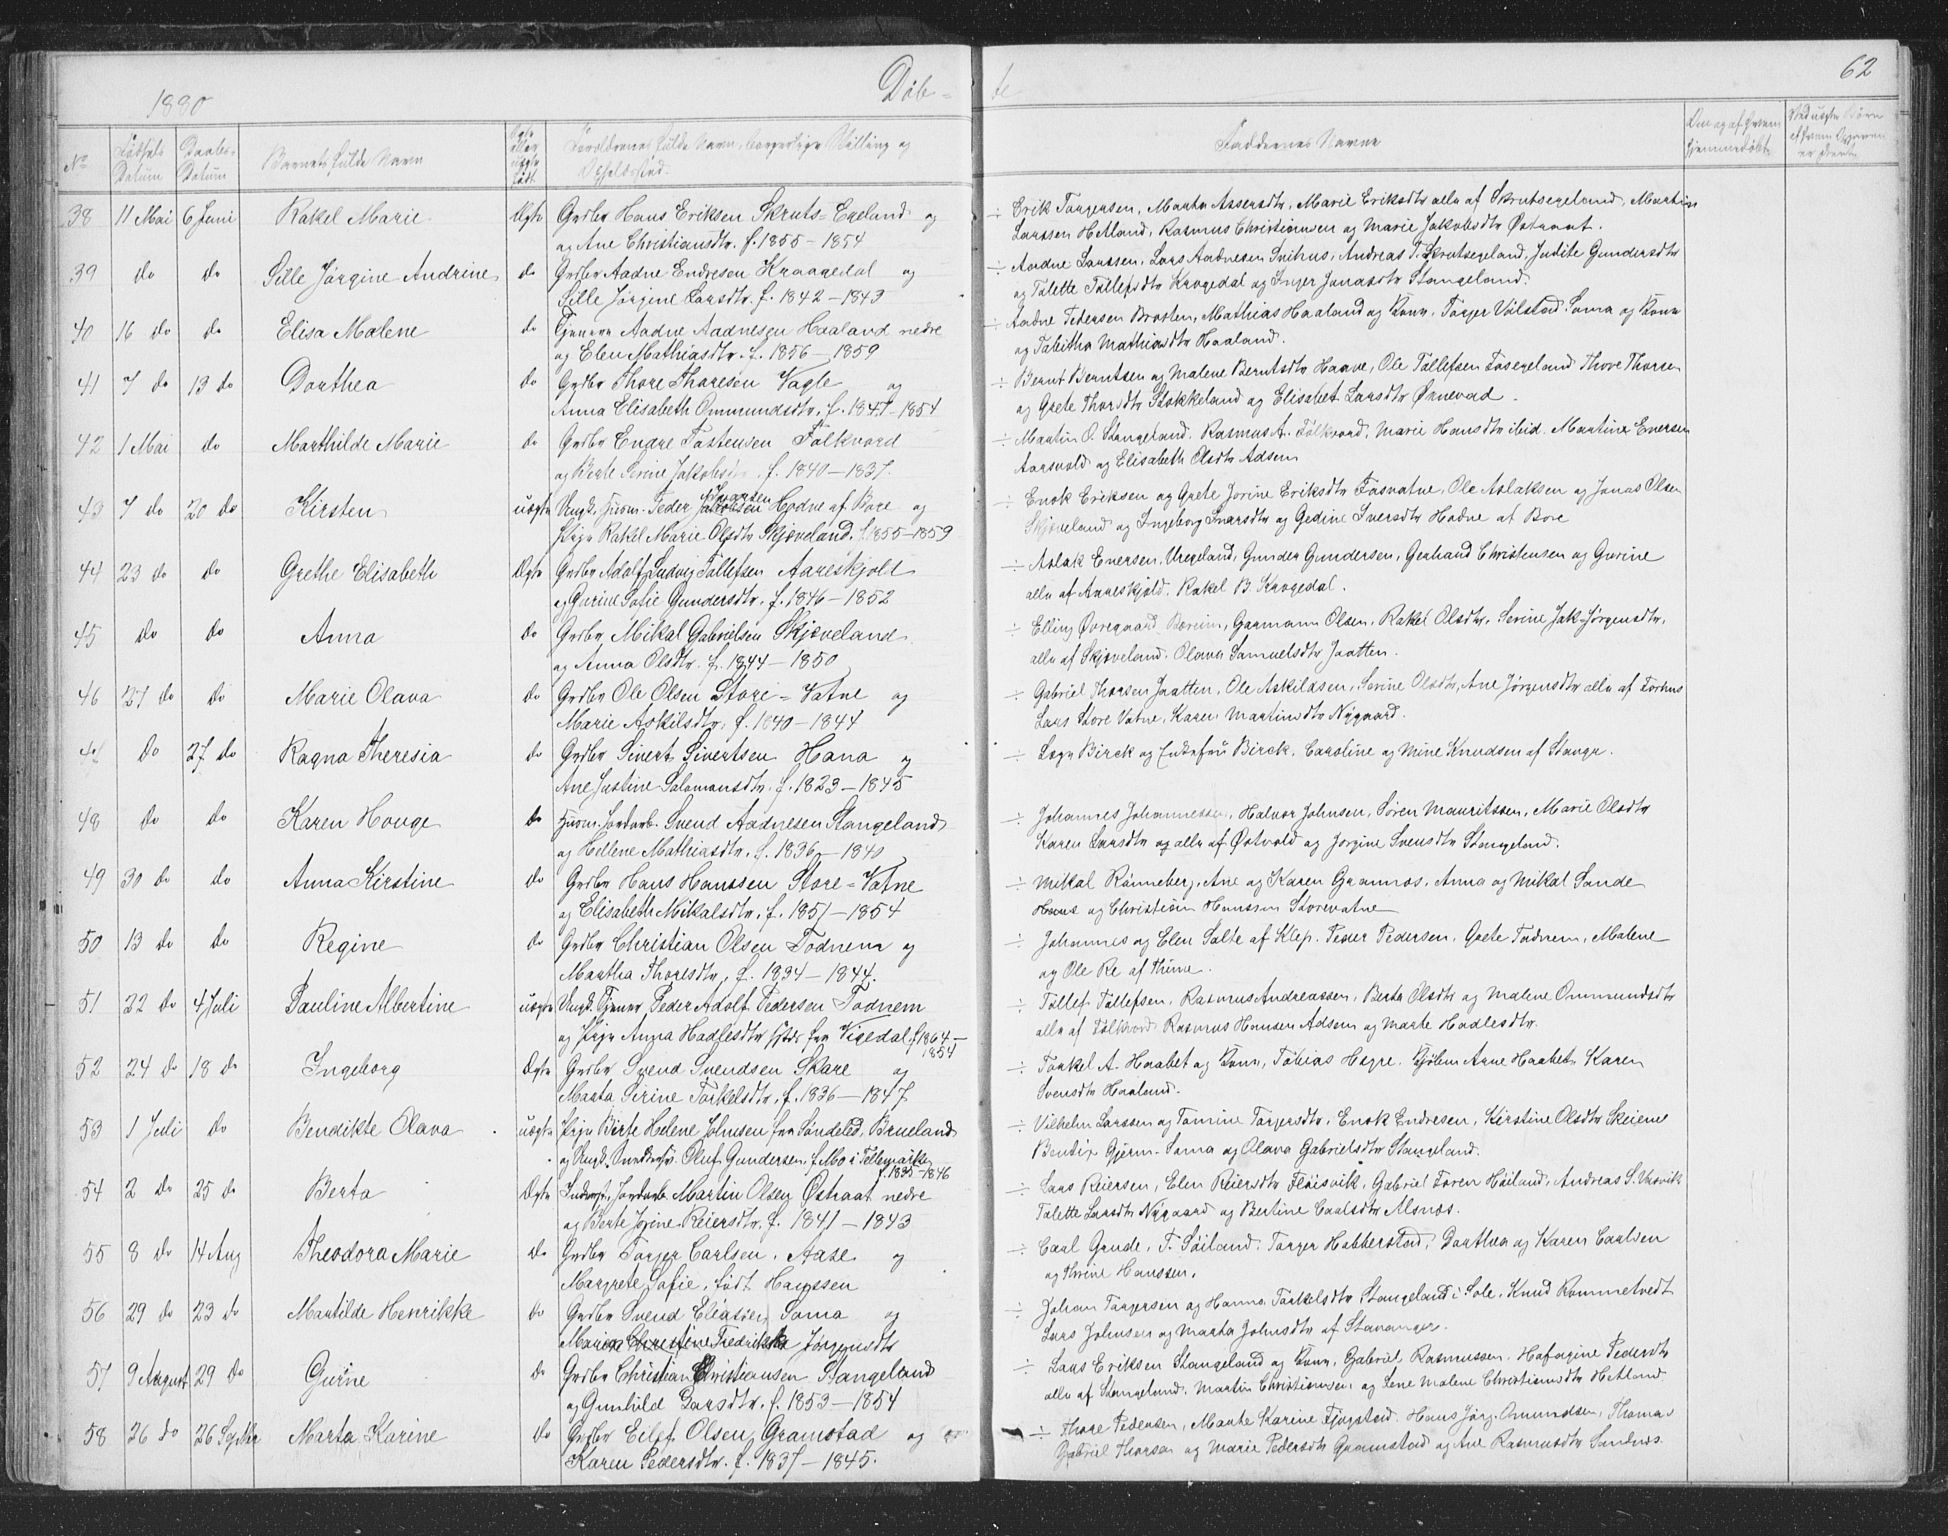 1880
Døb-
te
62
No
Fødsels Datum
Daabs-Datum
Barnets fulde Navn
Forældrenes fulde Navn, borgerlige Stilling og
Opholdssted.
Faddernes Navne
38 11 Mai 6 Juni Rakel Marie Ægte Grdbr Hans Eriksen Skruts-Egeland og
og Ane Christiansdtr. f. 1855-1854
÷ Erik Torgersen, Marta Assersdtr, Marie Eriksdtr alle af Skrutsegeland, Martin
Larssen Hetland, Rasmus Christiansen og Marie Jakobsdtr Østraat.
39 do do Sille Jørgine Andrine do Grdbr Aadne Endresen Kraagedal og
Sille Jørgine Larsdtr. f. 1842-1843
÷ Aadne Larssen, Lars Aadnesen Svihus, Andreas T. Skrutsegeland, Judite Gundersdtr
og Talette Tollefsdtr Krogedal og Inger Jonasdtr Stangeland.
40 16 do do Elisa Malene do Tjener Aadne Aadnesen Haaland nedre
og Elen Mathiasdtr. f. 1856-1859
÷ Aadne Pedersen Brasten, Mathias Haaland og Kone, Torger Vølstad Soma og Kone
og Tabitha Mathiasdtr Haaland.
41 7 do 13 do Dorthea do Grdbr Thore Thoresen Vagle og
Anna Elisabeth Ommundsdtr. f. 1847-1854
÷ Bernt Berntsen og Malene Berntsdtr Haave, Ole Tollefsen Fosegeland Thore Thorsen
og Grete Thorsdtr Stokkeland og Elisabet Larsdtr Ørnevad.
42 1 Mai do Marthilde Marie do Grdbr Endre Tostensen Folkvord
og Berte Serine Jakobsdtr. f. 1840-1837.
÷ Martin O. Stangeland. Rasmus A. Folkvord, Marie Hansdtr ibid. Martine Enersen
Aarsvold og Elisabeth Olsdtr Adsen
43 7 do 20 do Kirsten uægte Ungk. Tjener Peder Ivarsen Jakobsen Hodne af Bore og
Pige Rakel Marie Olsdtr Skjæveland. f. 1855-1859
÷ Enok Eriksen og Grete Jorine Eriksdtr Fosvatne, Ole Aslaksen og Jonas Olsen
Skjæveland og Ingeborg Ivarsdtr og Gedine Iversdtr Hodne af Bore
44 23 do do Grethe Elisabeth Ægte Grdbr Adolf Ludvig Tollefsen Aareskjold
og Gurine Sofie Gundersdtr. f. 1846-1852
÷ Aslak Enersen, Uregeland, Gunder Gundersen, Gerhard Christensen og Gurine
alle af Aareskjold. Rakel B. Krogedal.
45 do do Anna do Grdbr Mikal Gabrielsen Skjæveland
og Anna Olsdtr. f. 1844-1850
÷ Elling Øvregaard Bæreim, Garmann Olsen, Rakel Olsdtr, Serine Jak-Jørgensdtr,
alle af Skjæveland. Olava Samuelsdtr Jaatten.
46 27 do do Marie Olava do Grdbr Ole Olsen Store-Vatne og
Marie Askilsdtr. f. 1840-1844
÷ Gabriel Thorsen Jaatten, Ole Askildsen, Serine Olsdtr, Ane Jørgensdtr alle af Forhus
Lars Store Vatne, Karen Martinsdtr Nygaard.
47 do 27 do Ragna Theresia do Grdbr Sivert Sivertsen Hana og
Ane Justine Salomonsdtr. f. 1823-1845
÷ Læge Birck og Enkefru Birck, Caroline og Mine Knudsen af Stange.
48 do do Karen Houge do Husm. Jordarb. Svend Aadnesen Stangeland
og Hellene Mathiasdtr. f. 1836-1840
÷ Johannes Johannessen, Halvor Johnsen, Søren Mauritssen, Marie Olsdtr
Karen Larsdtr og alle af Østvold og Jorgine Svensdtr Stangeland.
49 30 do do Anna Kirstine do Grdbr Hans Hanssen Store-Vatne
og Elisabeth Mikalsdtr. f. 1851-1854
÷ Mikal Rønneberg, Ane og Karen Grannes, Anna og Mikal Sande
Hans og Christian Hanssen Storevatne
50 13 do do Regine do Grdbr Christian Olsen Todnem og
Martha Thoresdtr. f. 1834-1844.
÷ Johannes og Elen Salte af Klep. Peder Pedersen, Grete Todnem, Malene
og Ole Re af Thime.
51 22 do 4 Juli Pauline Albertine uægte Ungk. Tjener Peder Adolf Pedersen Todnem
og Pige Anna Hadlesdtr fra Vigedal f. 1864-
1854
÷ Tollef Tollefsen, Rasmus Andreassen, Berta Olsdtr og Malene Ommundsdtr
alle af Folkvord Rasmus Hansen Adsen og Marte Hadlesdtr.
52 24 do 18 do Ingeborg Ægte Grdbr Svend Svendsen Skare og
Marta Serine Torkelsdtr. f. 1836-1847
÷ Torkel A. Haabet og Kone, Tobias Hegre. Arne Haabet Karen
Svensdtr Haaland.
53 1 Juli do Bendikte Olava uægte Pige Birte Helene Johnsen fra Søndeled, Brueland
og Ungk. Oluf Gundersen, f. Mo i Tellemarken
f. 1835-1846
÷ Vilhelm Larssen og Tomine Torgersdtr, Enok Endresen, Kirstine Olsdtr Skeiene
Bentix Gjerm. Soma og Olava Gabrielsdtr Stangeland.
54 2 do 25 do Berta Ægte Inderst, Jordarb. Martin Olsen Østraat nedre
og Berte Jorine Reiersdtr. f. 1841-1843
÷ Lars Reiersen, Elen Reiersdtr Fløisvik, Gabriel Søren Høiland, Andreas S.
Talette Larsdtr Nygaard og Bertine Carlsdtr Alsnos.
55 8 do 14 Aug Theodora Marie do Grdbr Torger Carlsen. Aase og
Margrete Sofie, født Hanssen
÷ Carl Grude, T. Søiland. Torger Habberstad, Dorthea og Karen Carlsen
og Thrine Hanssen.
56 29 do 23 do Martilde Henrikke do Grdbr Svend Eliasen Soma og
Maren Christine Fredrikke Jørgensdtr
÷ Johan Torgersen og Hanna Torkelsdtr Stangeland i Sole, Knud Rommetvedt
Lars Johnsen og Marta Johnsdtr af Stavanger.
57 9 August 29 do Gurine do Grdbr Christian Christiansen Stangeland
og Gunhild Larsdtr. f. 1853-1854
÷ Lars Eriksen Stangeland og Kone, Gabriel Rasmussen. Pedersdtr
alle af Stangeland. Martin Christiansen og Lene Malene Christiansdtr Hetland
58 26 do 26 Septbr Marta Karine do Grdbr Eilef Olsen Gramstad og
Karen Pedersdtr. f. 1837-1845.
÷ Thore Pedersen, Marte Karine Fjogstad. Hans Jørg. Ommundsen, Thomas
Gabriel Thorsen og Marie Pedersdtr Gramstad og Ane Rasmusdtr Sandnes.